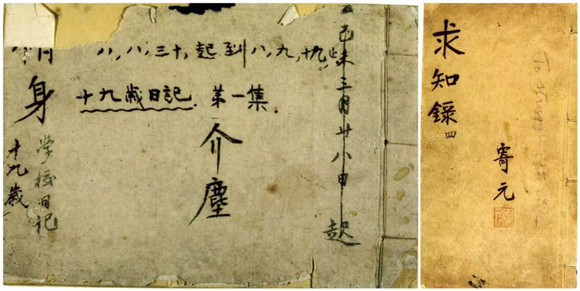 八,八,三十,起到八,九,十九,止
十九歲日記. 第一集.
介塵
己未三月廿八日起
身
學校日記
十九歲
求知錄 四
寄元